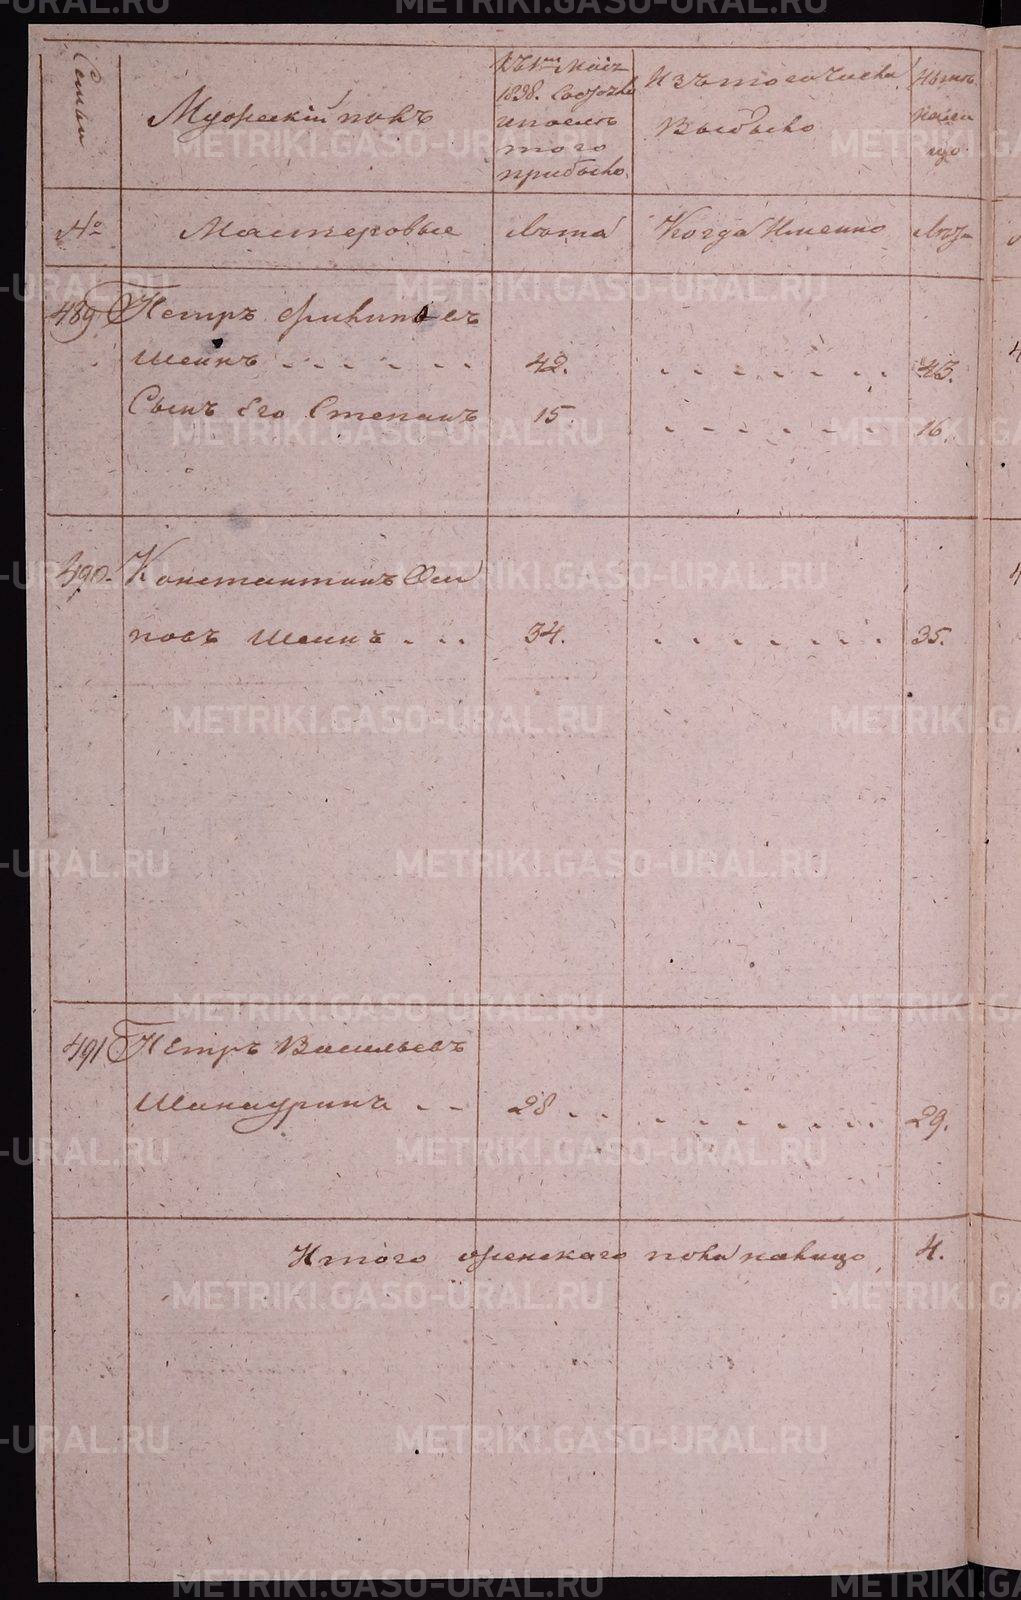 Семьи
Мужескій полъ
1838. Состояло
и после
того
прибыло
Изъ того числа
выбыло
Ныне
лицо
№
Мастеровые
Лета
Когда Именно
Лета
489
Петръ Филиповъ
Шеинъ 42. 43.
Сынъ Его Степанъ 15. 16.
490. Константинъ Оси
повъ Шеинъ 34. 35.
491. Петръ Васильевъ
28 29.
Итого женскаго пола налицо 4.
METRIKI.GASO-URAL.RU